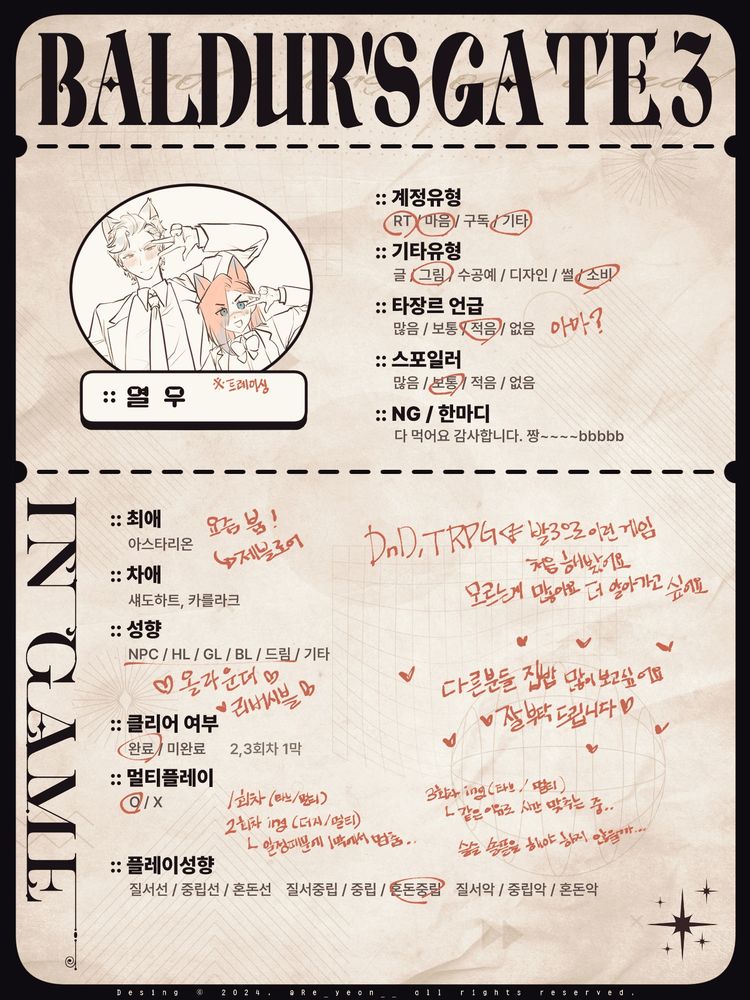 BALDUR'S GATE 3
:: 계정유형
RT / 마음 / 구독 / 기타
:: 기타유형
글 / 그림 / 수공예 / 디자인 / 썰 / 소비
:: 타장르 언급
많음 / 보통 / 적음 / 없음 아마?
:: 스포일러
많음 / 보통 / 적음 / 없음
:: NG / 한마디
다 먹어요 감사합니다. 짱~~~~bbbbb
:: 열우 ※트레이싱
IN GAME
:: 최애
아스타리온
요즘 붐!
↳제블로어
:: 차애
섀도하트, 카를라크
:: 성향
NPC / HL / GL / BL / 드림 / 기타
♡올라운더♡
♥리버시블♡
DnD, TRPG 발3으로 이런 게임
처음 해봤어요
모르는게 많아요 더 알아가고 싶어요
다른분들 집밥 많이 보고싶어요
♥잘부탁드립니다♡
:: 클리어 여부
완료 / 미완료 2,3회차 1막
:: 멀티플레이
O / X
1회차 (타브/멀티)
2회차 ing (더지/멀티)
ㄴ 일정때문에 1막에서 멈춤..
3회차 ing (타브 / 멀티)
ㄴ 같은이유로 시간 맞추는 중..
슬슬 솔플을 해야 하지 않을까...
:: 플레이성향
질서선 / 중립선 / 혼돈선 질서중립 / 중립 / 혼돈중립 질서악 / 중립악 / 혼돈악
Desing © 2024. @Re_yeon__ all rights reserved.